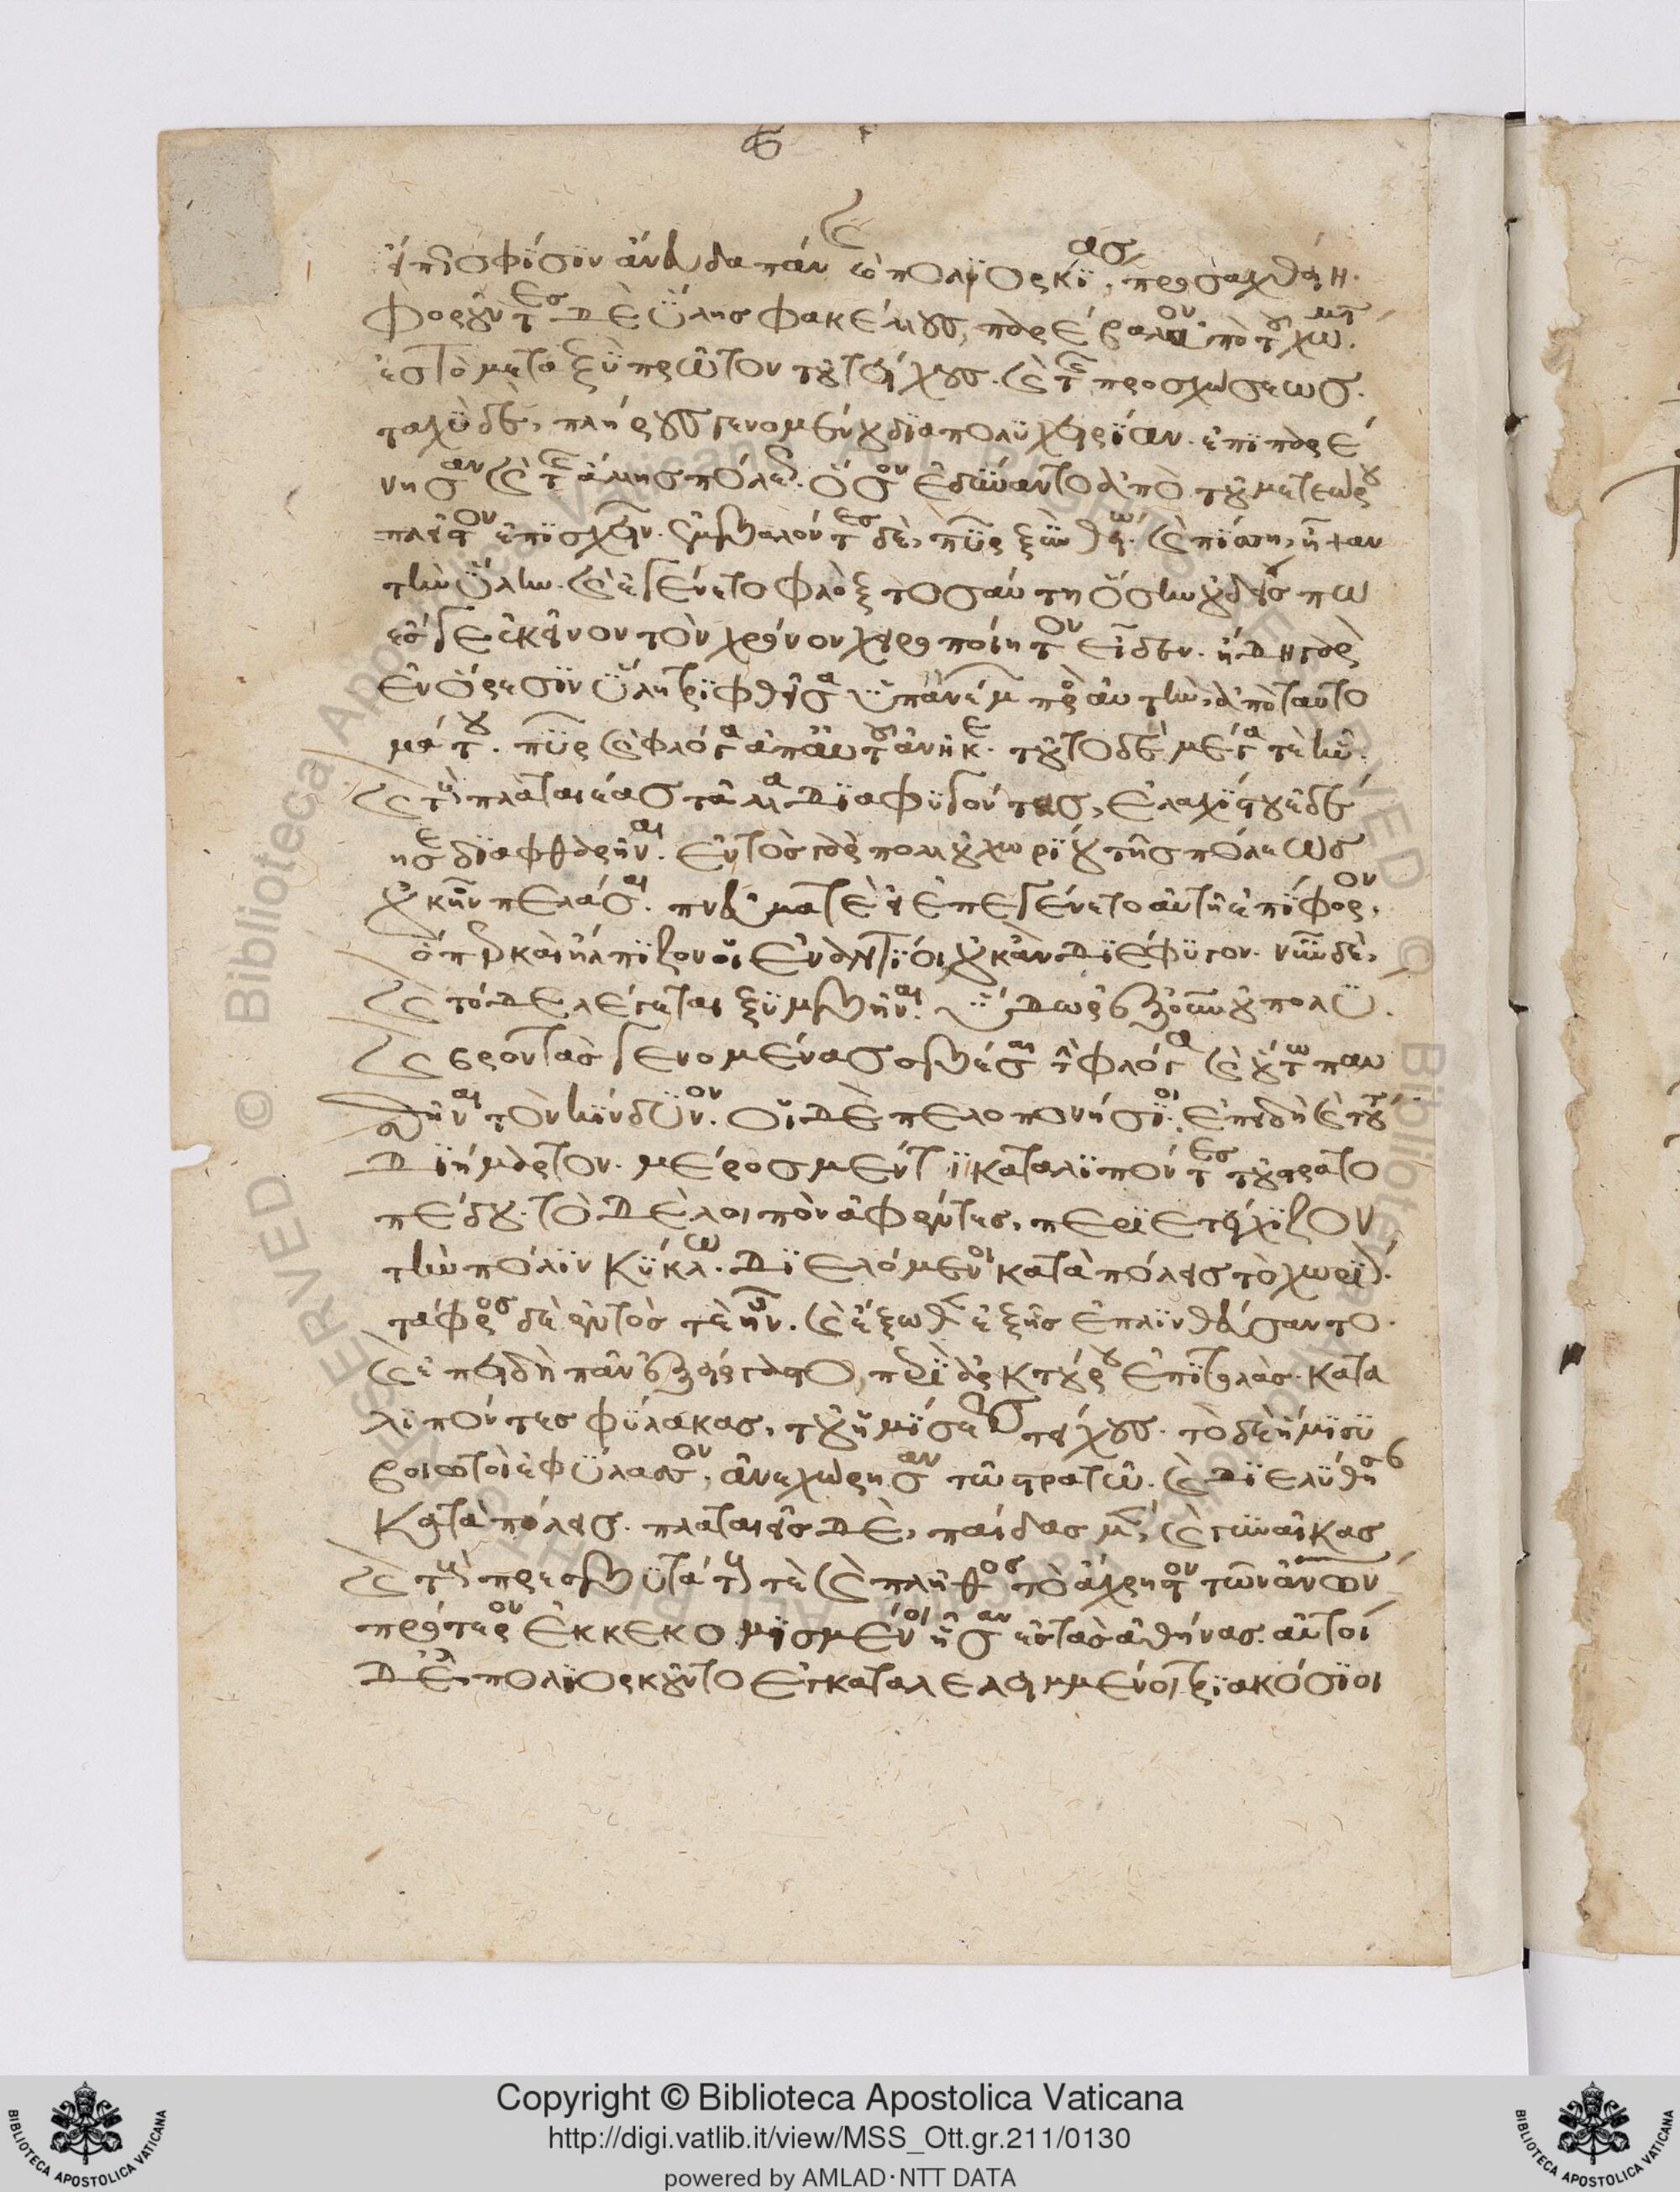 εἴ πως σφίσιν ἄνευ δαπάνης καὶ πολιορκίας, προσαχθείη.
φοροῦντες δὲ ὕλης φακέλλους, παρέβαλον ἀπὸ τοῦ χώματ
ἐς τὸ μεταξὺ πρῶτον τοῦ τείχους. καὶ τῆς προσχώσεως.
ταχὺ δὲ, πλήρους γενομένου διὰ πολυχειρίαν. ἐπὶ παρέ
νησαν καὶ τῆς ἄλλης πόλεως. ὅσον ἐδύναντο ἀπὸ τοῦ μετεώρου
πλεῖστον ἐπισχεῖν. ἐμβαλόντες δὲ, πῦρ ξὺν θείῳ. καὶ πίσσῃ, ἧψαν
τὴν ὕλην. καὶ ἐγένετο φλὸξ τοσαύτη ὅσην οὐδείς πω
ἔς γε ἐκεῖνον τὸν χρόνον χειροποίητον εἶδεν. ἤδη γὰρ
ἐν ὄρεσιν ὕλη τριφθεῖσα ὑπ' ἀνέμων πρὸς αὐτὴν, ἀπὸ ταὐτο
μάτου. πῦρ καὶ φλόγα ἀπ' αὐτοῦ ἀνῆκε. τοῦτο δὲ μέγα τὲ ἦν.
καὶ τοὺς πλαταιέας τἆλλα διαφυγόντας, ἐλαχίστου ἐδέ
ησε διαφθαρῆναι. ἐντὸς γὰρ πολλοῦ χωρίου τῆς πόλεως
οὐκ ἦν πελάσαι. πνεῦμά τε εἰ ἐπεγένετο αὐτῇ ἐπίφορον,
ὅπερ καὶ ἤλπιζον οἱ ἐναντίοι, οὐκ ἂν διέφυγον. νῦν δὲ,
καὶ τόδε λέγεται ξυμβῆναι. ὕδωρ ἐξ οὐρανοῦ πολὺ.
καὶ βροντὰς γενομένας σβέσαι τὴν φλόγα καὶ οὕτω παυ
θῆναι τὸν κίνδυνον. οἱ δὲ πελοπονήσιοι. ἐπειδὴ καὶ τούτ
διήμαρτον. μέρος μέν τι καταλιπόντες τοῦ στρατο
πέδου. τὸ δὲ λοιπὸν ἀφέντες, περιετείχιζον
τὴν πόλιν κύκλῳ. διελόμενοι κατὰ πόλεις τὸ χωρίον.
τάφρος δὲ ἐντός τε ἦν. καὶ ἔξωθεν ἐξ ἧς ἐπλινθεύσαντο.
καὶ ἐπειδὴ πᾶν ἐξείργαστο, περὶ ἀρκτούρου ἐπιτολὰς. κατα
λιπόντες φύλακας, τοῦ ἡμίσεος τείχους. τὸ δὲ ἥμισυ
βοιωτοὶ ἐφύλασσον, ἀνεχώρησαν τῷ στρατῷ. καὶ διελύθησ
κατὰ πόλεις. πλαταιεῖς δὲ, παῖδας μὲν, καὶ γυναῖκας
καὶ τοὺς πρεσβυτάτους τὲ καὶ πλῆθος τὸ ἄχρηστον τῶν ἀνθρώπων
πρότερον ἐκκεκομισμένοι ἦσαν ἐς τὰς ἀθήνας. αὐτοὶ
δὲ ἐπολιορκοῦντο ἐγκαταλελειμμένοι τριακόσιοι
Copyright © Biblioteca Apostolica Vaticana
http://digi.vatlib.it/view/MSS_Ott.gr.211/0130
powered by AMLAD·NTT DATA